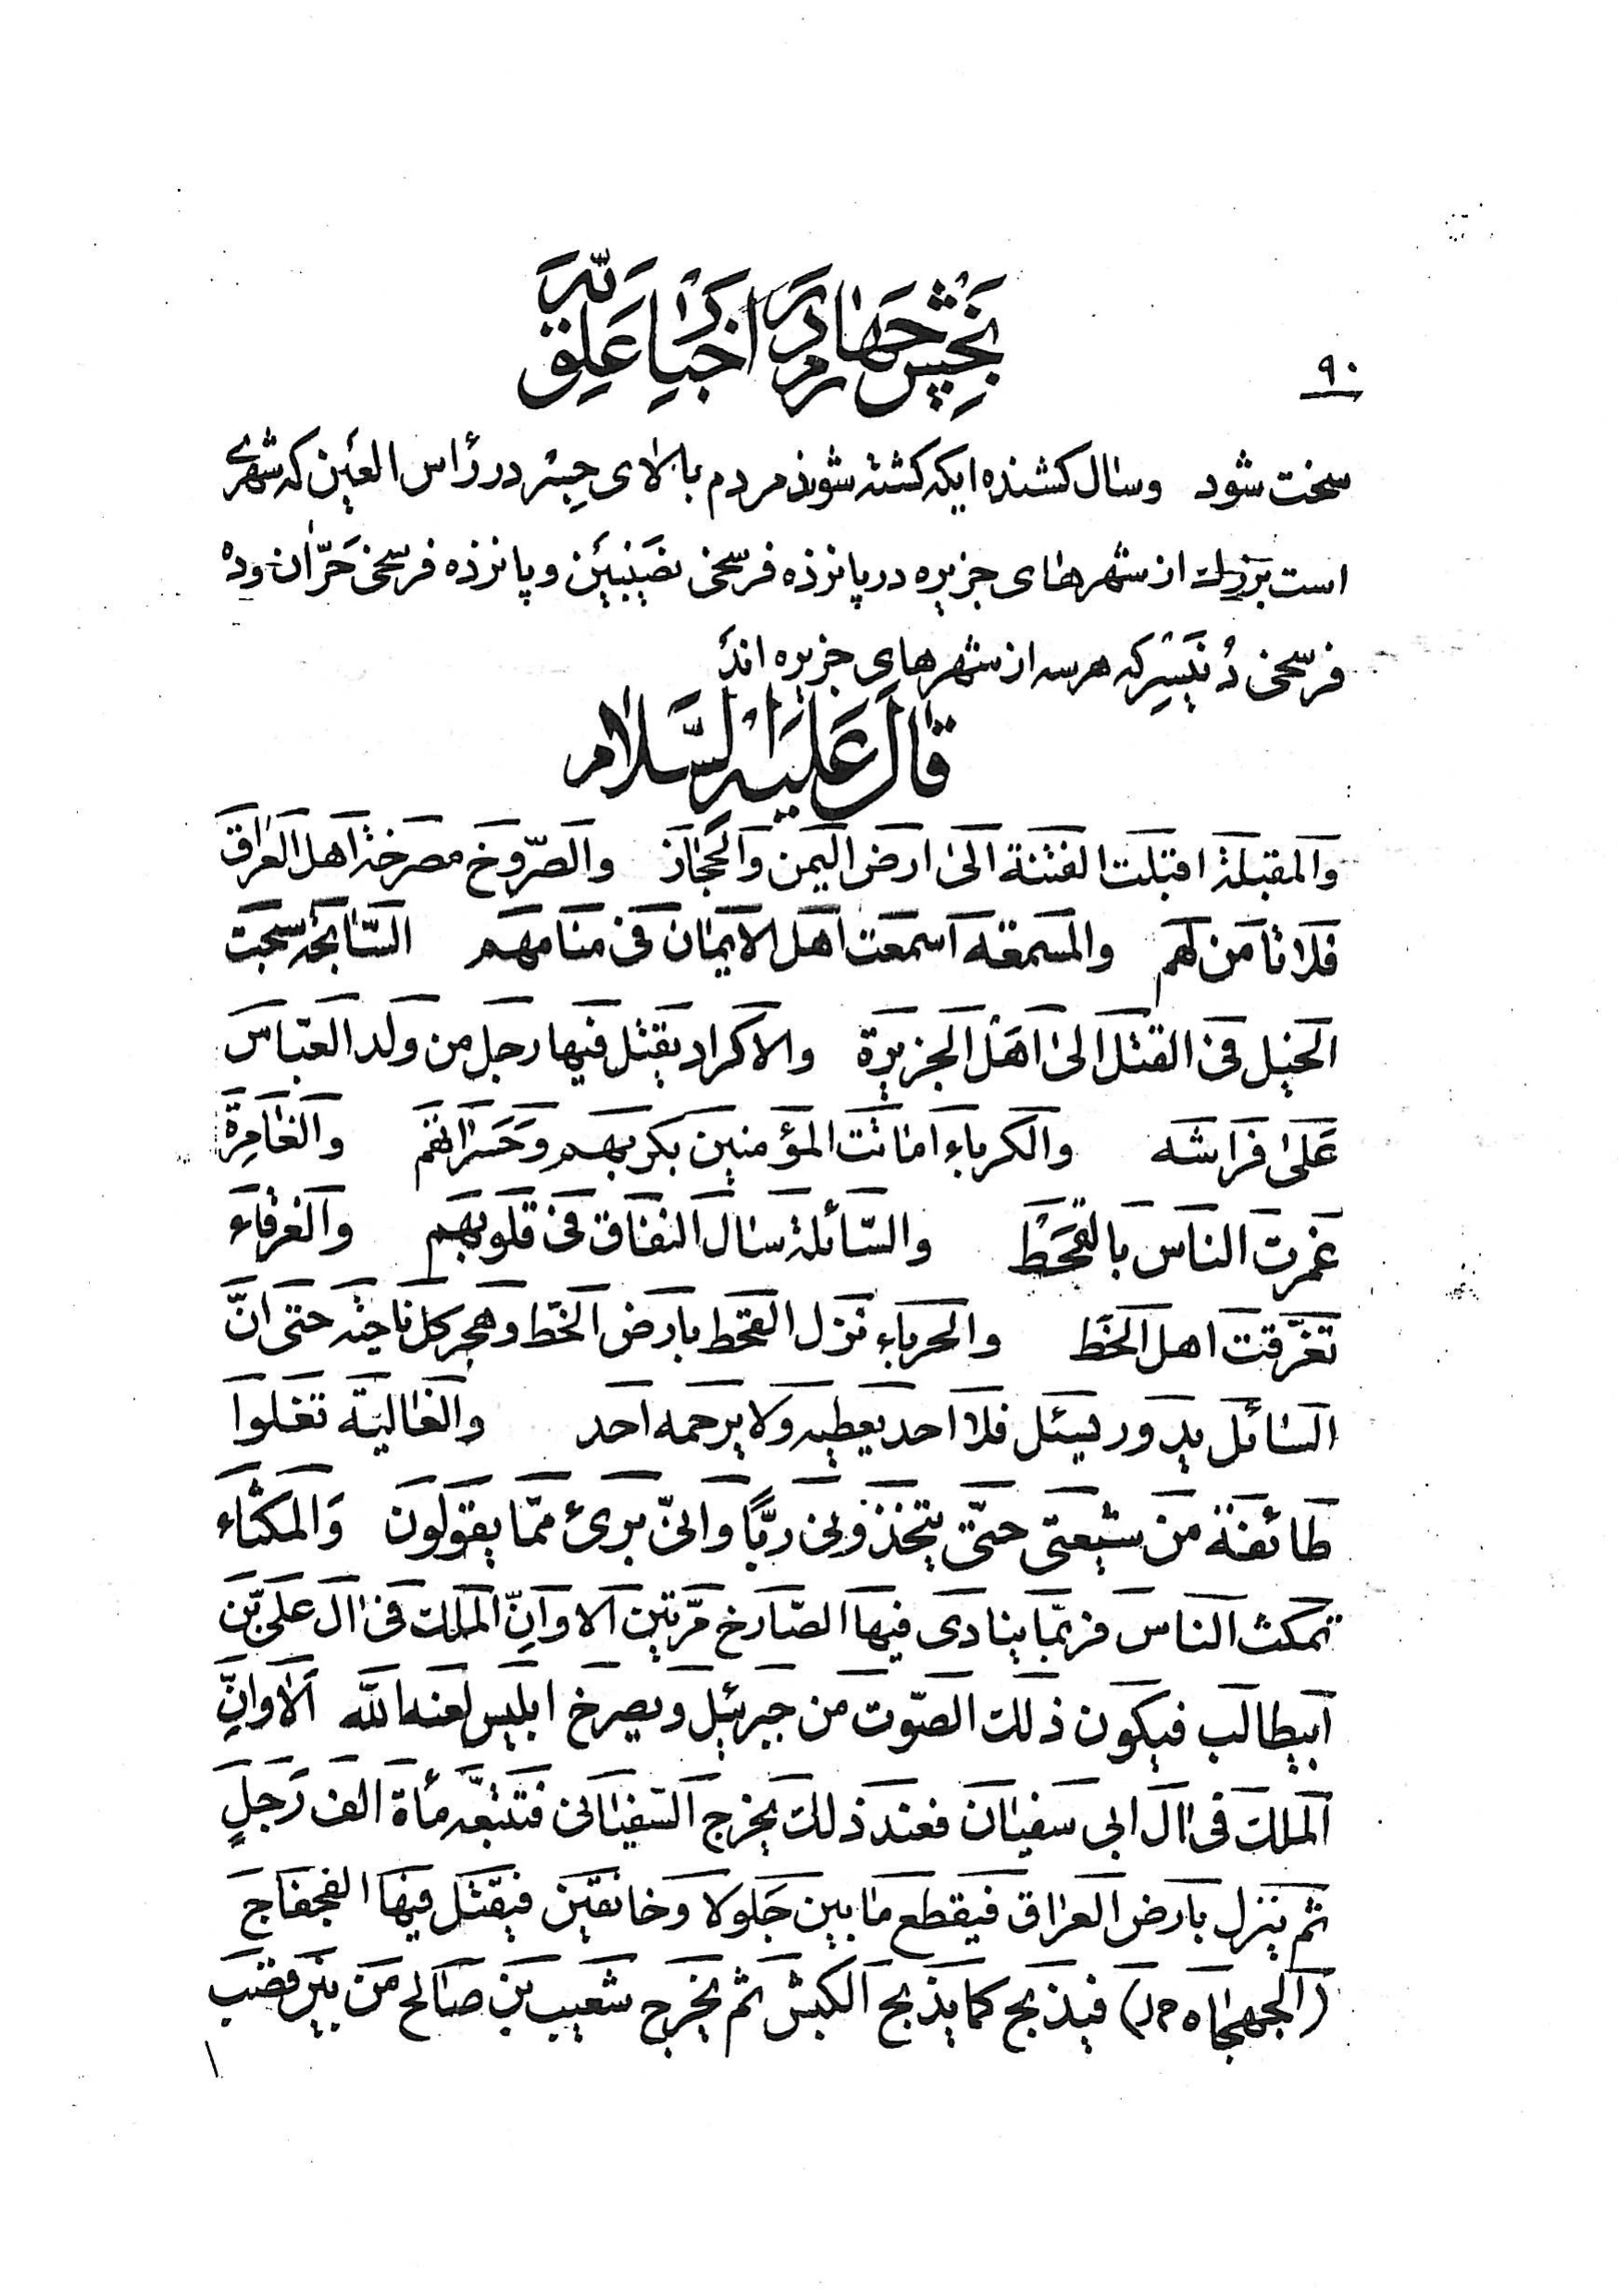 بخش چهارم در اخبار علویّه
۹۰
سخت شود وسال کشنده ایکه کشته شوند مردم بالای جسر در رأس العین که شهری
است بزرك از شهرهای جزیره در پانزده فرسخی نصیبین و پانزده فرسخی حَرّان و ده
فرسخی دُنیسِر که هر سه از شهرهای جزیره اند
قال علیه السّلام
والمقبلة اقبلت الفتنة الی ارض الیمن والحجاز والصّروخ مصرخة اهل العراق
فلا تأمن لهم والمسمعه اسمعت اهل الایمان فی منامهم السّابحه سبحت
الخیل فی القتل الی اهل الجزیرة والاکراد یقتل فیها رجل من ولد العبّاس
عَلی فراشه والکرباء اماتت المؤمنین بکربهم وحَسَراتهم والغامِرة
غمرت الناس بالقحط والسّائلة سال النفاق فی قلوبهم والغرقاء
تغرّقت اهل الخَط والحرباء نزل القحط بارض الخَط وهجر کل ناحیه حتی انّ
السائل یدور یسئل فلا احد یعطیه ولا یرحمه احد والغالیة تغلوا
طائفة من شیعتی حتّی یتخذونی ربًّا وانّی بریء ممّا یقولون وَالمکثاء
تمکث الناس فربّما ینادی فیها الصّارخ مرّتین الا وانّ الملك فی ال علی بن
ابیطالب فیکون ذلك الصّوت من جبرئیل ویصرخ ابلیس لعنه الله اَلا وانَّ
الملك فی ال ابی سفیان فعند ذلك یخرج السّفیانی فتتبعّه مأة الف رَجلٍ
ثم ینزل بارض العراق فیقطع ما بین جَلولا وخانقین فیقتل فیها الفجفاج
(الجهجاه خ ل) فیذبح کما یذبح الکبش ثم یخرج شعیب بن صالح من بین قصب